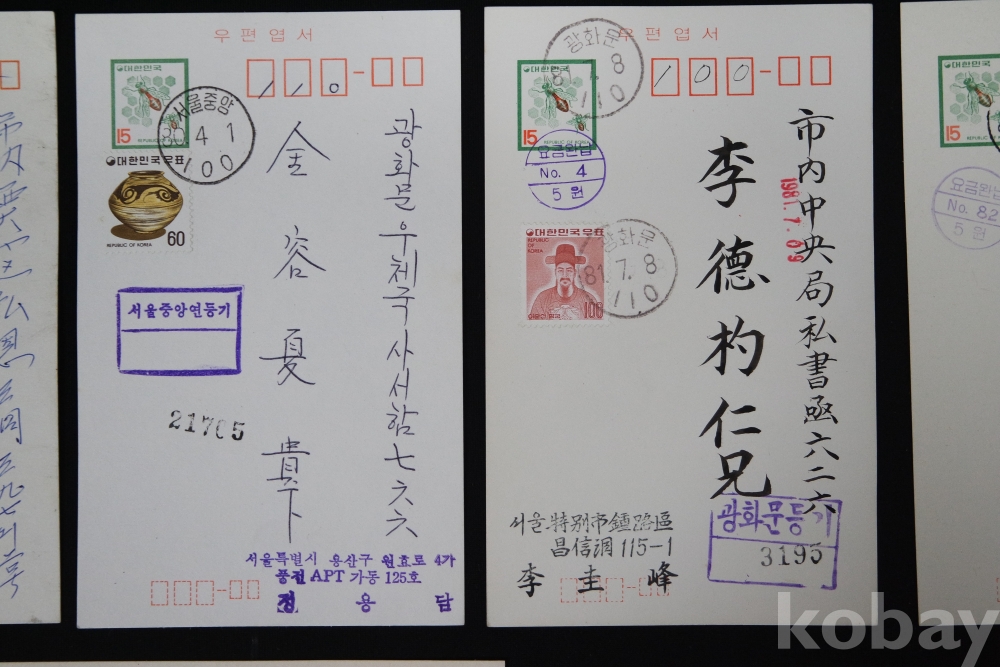 우편엽서
대한민국
15
REPUBLIC OF KOREA
110-
서울중앙
80.4.1
100
대한민국우표
REPUBLIC OF KOREA
60
광화문우체국사서함七六六
金容夏 貴下
서울중앙연등기
21705
서울특별시 용산구 원효로 4가
풍전 APT 가동 125호
정용담
우편엽서
대한민국
15
100-
광화문
81.7.8
110
요금완납
No. 4
5원
대한민국우표
REPUBLIC OF KOREA
100
광화문
81.7.8
110
市内中央局私書函六二六
1981.7.09
李德杓仁兄
서울特別市鍾路區
昌信洞 115-1
李圭峰
광화문등기
3195
대한민국
15
REPUBLIC
요금완납
No. 82
5원
kobay